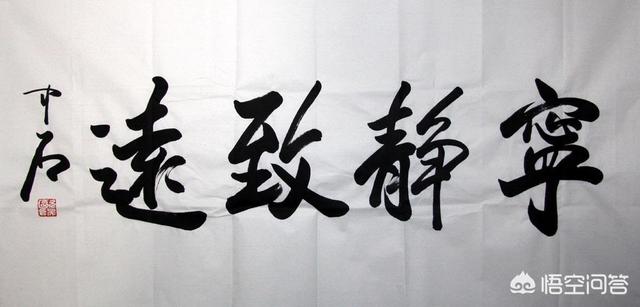 寧靜致遠
中石
悟空问答